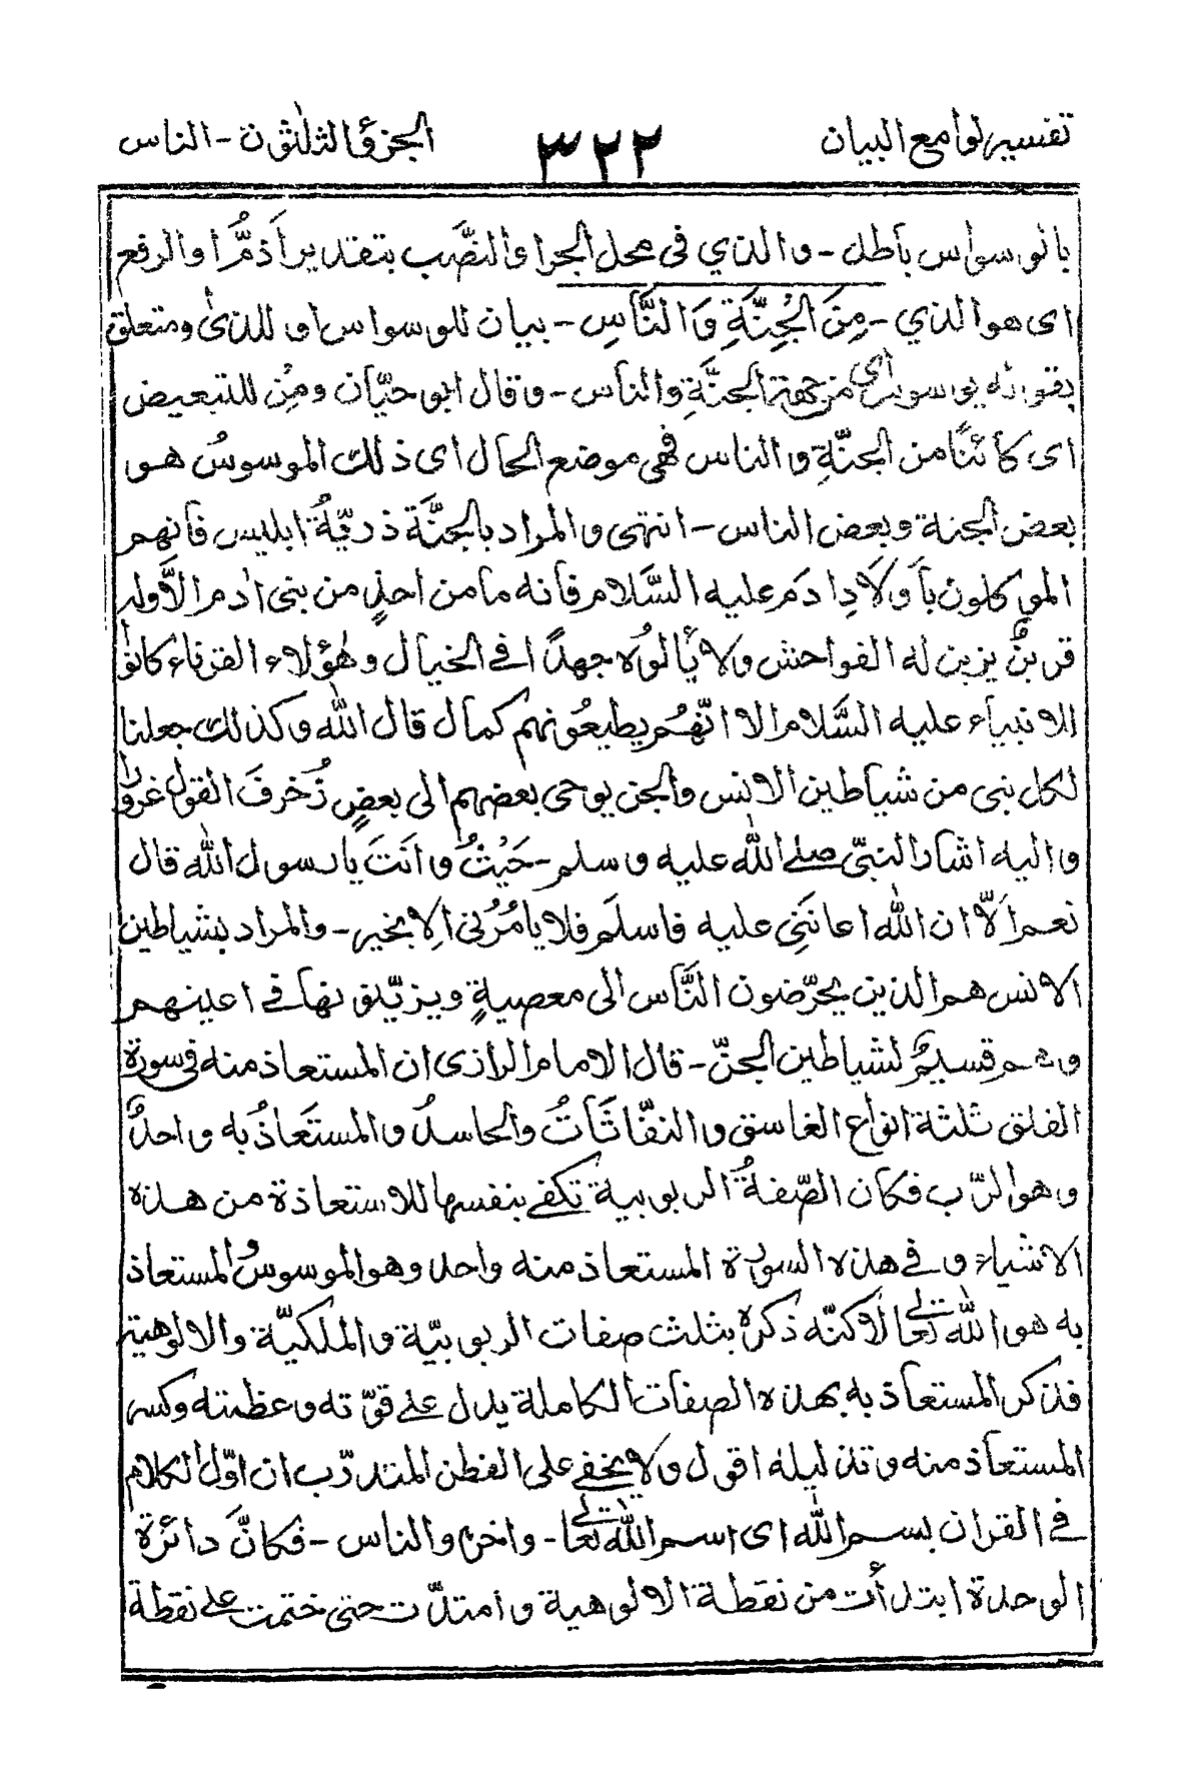 تفسير لوامع البيان
٣٢٢
الجزؤ الثلثون - الناس
بالوسواس باطل - والذي فى محل الجر او النصب بتقدير أذمُّ او الرفع
اى هو الذي - مِنَ الْجِنَّةِ وَالنَّاسِ - بيان للوسواس او للذى ومتعلق
بقوله يوسوس اى من جهة الجنَّةِ والناس - وقال ابو حيّان ومِن للتبعيض
اى كائنًا من الجنّةِ والناس فهى موضع الحال اى ذلك الموسوسُ هو
بعض الجنة وبعض الناس - انتهى والمراد بالجنَّة ذريّةُ ابليس فانهم
الموكلون بأولَادِ ادَم عليه السَّلام فانه ما من احدٍ من بنى ادم الاَّوله
قرينٌ يزين له الفواحش ولا يألوُه جهدًا فى الخيال وهٰؤلاء القرناء كانوا
للانبياء عليه السَّلام الا انّهُم يطيعُونهم كما قال الله وكذلك جعلنا
لكل نبى من شياطين الانس والجن يوحى بعضهم الى بعضٍ زُخرفَ القول غرورا
واليه اشار النبىّ صلى الله عليه وسلم - حَيْثُ وانتَ يا رسول الله قال
نعم الَّا ان الله اعانَنِى عليه فاسلَم فلا يامُرُنى الِا بخير - والمراد بشياطين
الانس هم الذين يحرّضون النَّاس الى معصيةٍ ويزيّنونها فى اعينهم
وهم قسيمٌ لشياطين الجنّ - قال الامام الرازى ان المستعاذ منه فى سورة
الفلق ثلثة انواع الغاسق والنفّاثَاتُ والحاسدُ والمستَعاذُ به واحدٌ
وهو الرّب فكان الصّفةُ الربوبية تكفى بنفسها للاستعاذة من هذه
الاشياء و فى هذه السورة المستعاذ منه واحد وهو الموسوسُ والمستعاذ
به هو الله تعالى لاكنّه ذكره بثلث صفات الربوبيّة والملكيّة والالوهية
فذكر المستعاذ به بهذه الصفات الكاملة يدل على قوّته وعظمته وكسر
المستعاذ منه وتذليله اقول ولا يخفى على الفطن المتدرّب ان اوّل الكلام
فى القران بسم الله اى اسم الله تعالى - واخره والناس - فكانَّ دائرة
الوحدة ابتدأت من نقطة الالوهية وامتدّت حتى ختمت على نقطة